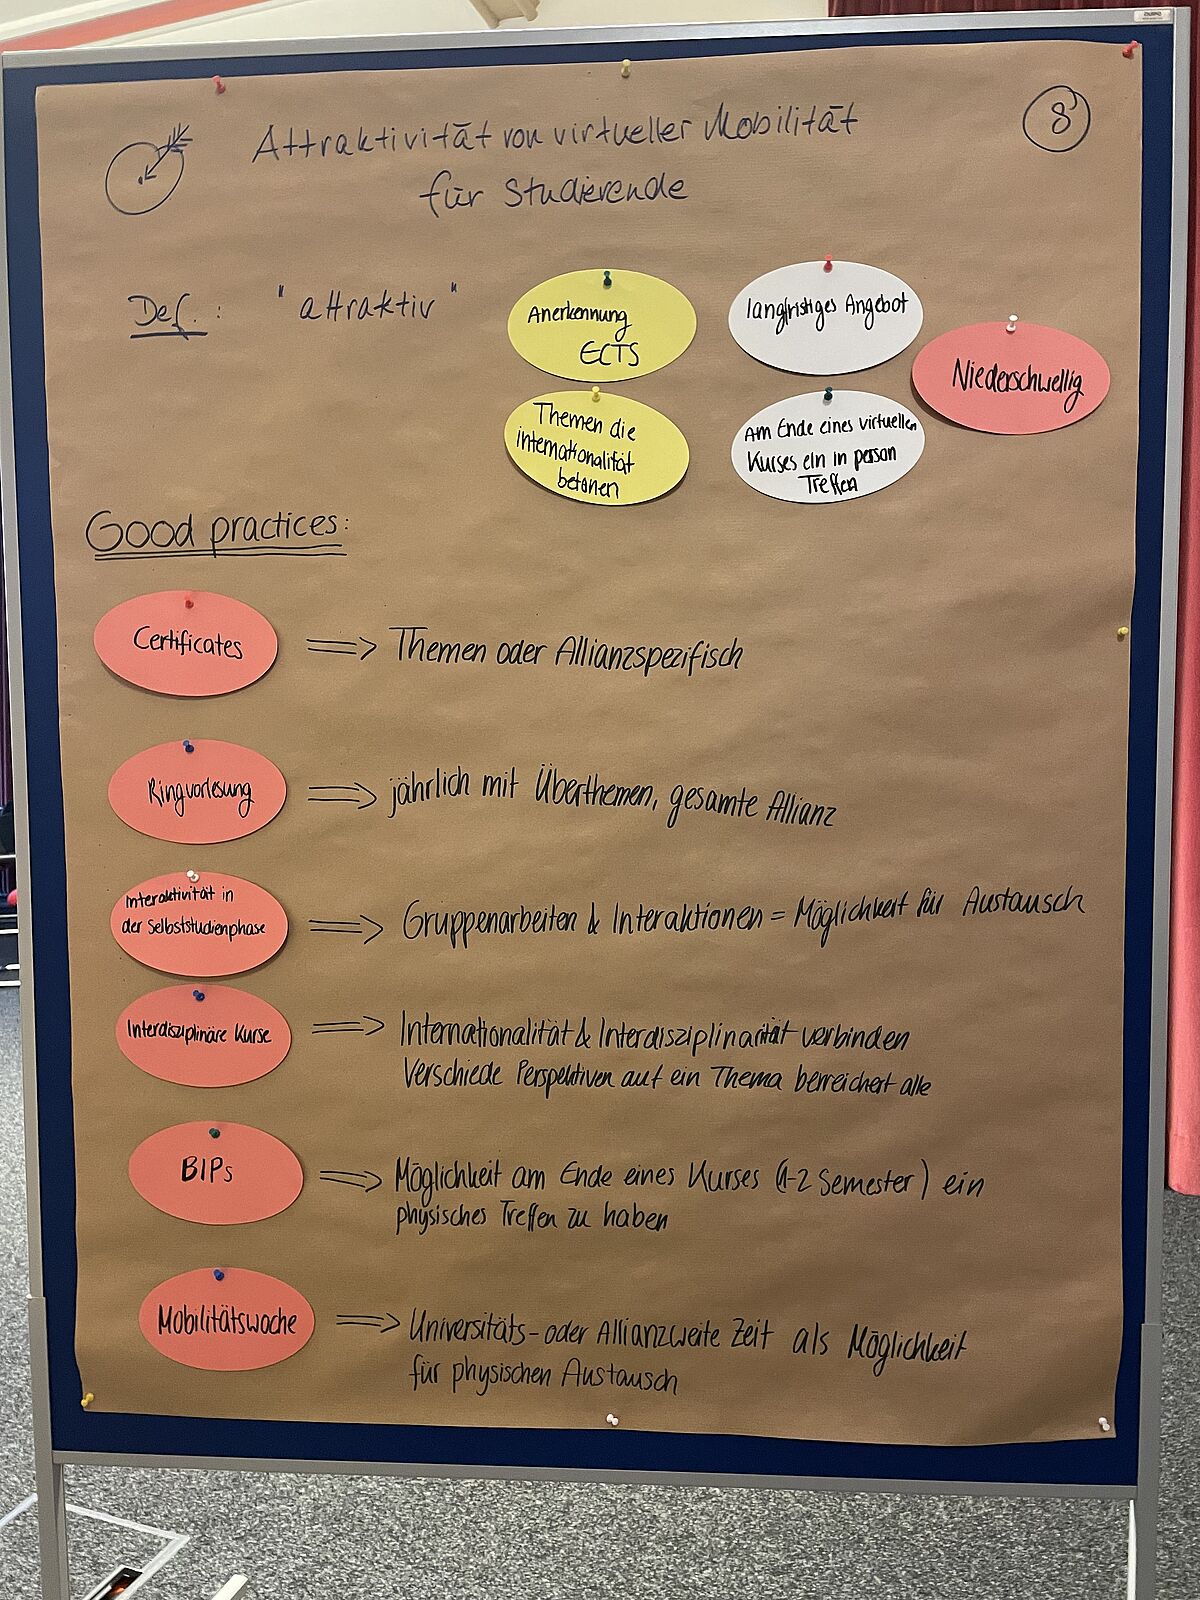 Attraktivität von virtueller Mobilität
für Studierende
8
Def.: "attraktiv"
Anerkennung
ECTS
langfristiges Angebot
Niederschwellig
Themen die
internationalität
betonen
Am Ende eines virtuellen
Kurses ein in person
Treffen
Good practices:
Certificates
Themen oder Allianzspezifisch
Ringvorlesung
jährlich mit Überthemen, gesamte Allianz
Interaktivität in
der Selbststudienphase
Gruppenarbeiten & Interaktionen = Möglichkeit für Austausch
Interdisziplinäre Kurse
Internationalität & Interdisziplinarität verbinden
Verschiede Perspektiven auf ein Thema berreichert alle
BIPs
Möglichkeit am Ende eines Kurses (1-2 Semester) ein
physisches Treffen zu haben
Mobilitätswoche
Universitäts- oder Allianzweite Zeit als Möglichkeit
für physischen Austausch